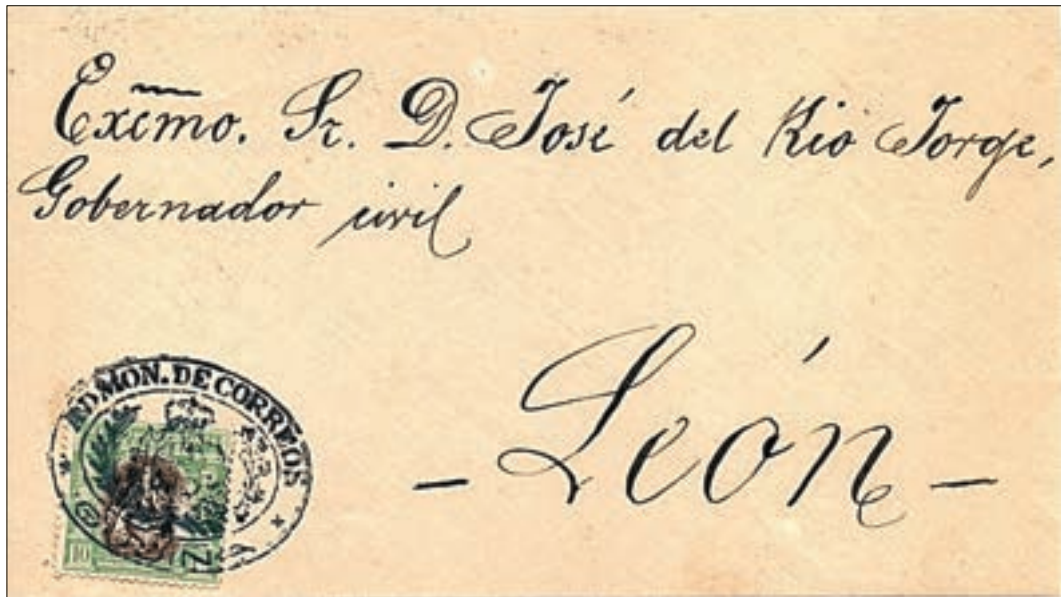 Excmo. Sr. D. José del Rio Jorge,
Gobernador civil
- León -
ADMON. DE CORREOS
10